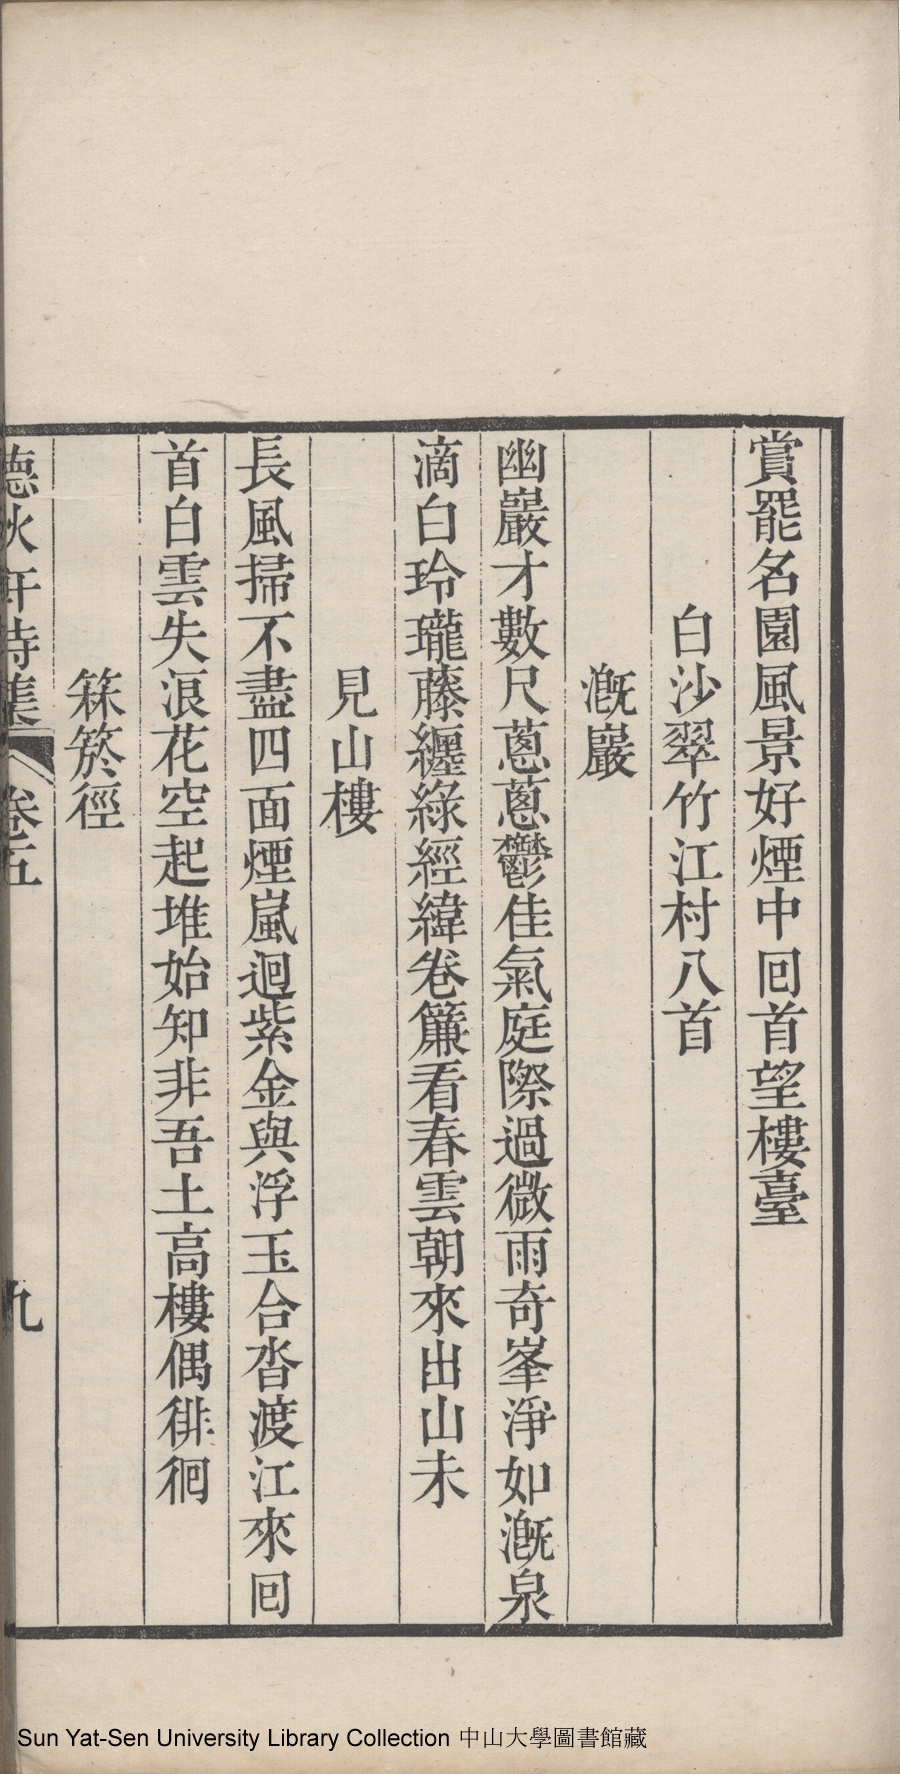 賞罷名園風景好煙中回首望樓臺
白沙翠竹江村八首
漑巖
幽巖才數尺蔥蔥鬱佳氣庭際過微雨奇峯淨如漑泉
滴白玲瓏藤纏綠經緯卷簾看春雲朝來出山未
見山樓
長風掃不盡四面煙嵐迴紫金與浮玉合沓渡江來回
首白雲失浪花空起堆始知非吾土高樓偶徘徊
箖箊徑
德秋軒詩集 卷五 九
Sun Yat-Sen University Library Collection 中山大學圖書館藏